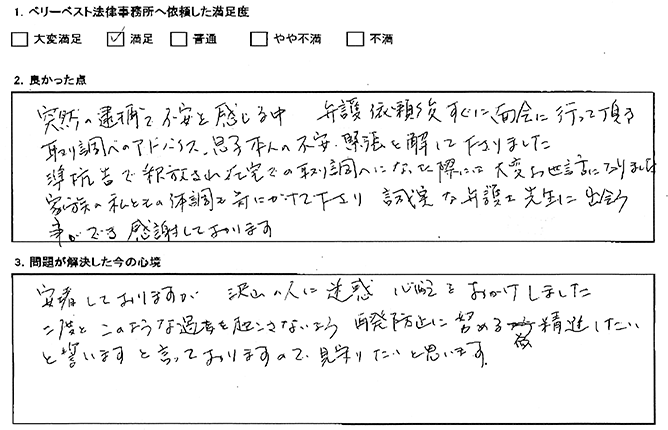 1. ベリーベスト法律事務所へ依頼した満足度
□ 大変満足 ☑ 満足 □ 普通 □ やや不満 □ 不満
2. 良かった点
突然の逮捕で不安を感じる中 弁護依頼後すぐに面会に行って頂き
取り調べのアドバイス、息子本人の不安、緊張を解して下さりました
準抗告で釈放され在宅での取り調べになった際には大変お世話になりました
家族の私どもの体調も気にかけて下さり 誠実な弁護士先生に出会う
事ができ感謝しております
3. 問題が解決した今の心境
安堵しておりますが 沢山の人に迷惑 心配をおかけしました
二度とこのような過ちを起こさないよう 再発防止に努める 精進したい
と誓いますと言っておりますので、見守りたいと思います。